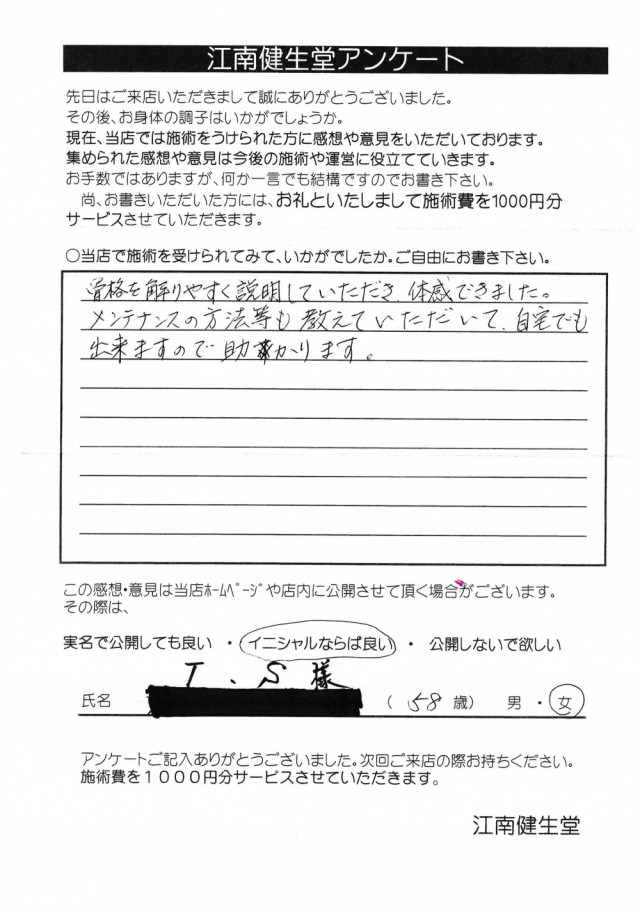 江南健生堂アンケート
先日はご来店いただきまして誠にありがとうございました。
その後、お身体の調子はいかがでしょうか。
現在、当店では施術をうけられた方に感想や意見をいただいております。
集められた感想や意見は今後の施術や運営に役立てていきます。
お手数ではありますが、何か一言でも結構ですのでお書き下さい。
尚、お書きいただいた方には、お礼といたしまして施術費を1000円分
サービスさせていただきます。
○当店で施術を受けられてみて、いかがでしたか。ご自由にお書き下さい。
骨格を解りやすく説明していただき、体感できました。
メンテナンスの方法等も教えていただいて、自宅でも
出来ますので助かります。
この感想・意見は当店ﾎｰﾑﾍﾟｰｼﾞや店内に公開させて頂く場合がございます。
その際は、
実名で公開しても良い ・ イニシャルならば良い ・ 公開しないで欲しい
T.S様
氏名 (58歳) 男・女
アンケートご記入ありがとうございました。次回ご来店の際お持ちください。
施術費を１０００円分サービスさせていただきます。
江南健生堂